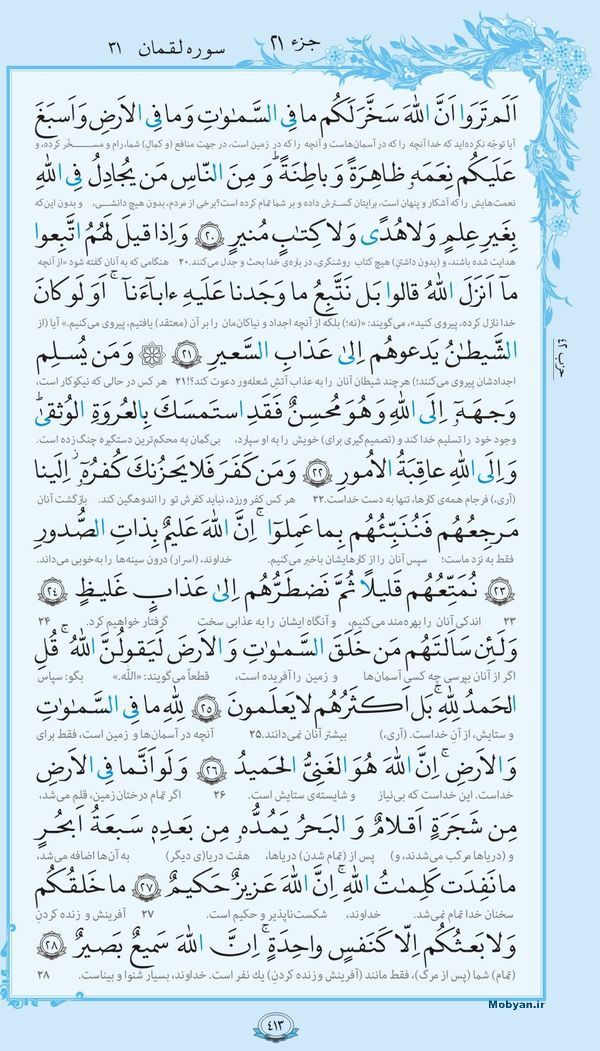 جزء ۲۱
سوره لقمان ۳۱
اَلَم تَرَوا اَنَّ اللهَ سَخَّرَ لَكُم ما فِى السَّمـٰوٰتِ وَ ما فِى الاَرضِ وَ اَسبَغَ
آیا توجّه نکرده‌اید که خدا آنچه را که در آسمان‌هاست و آنچه را که در زمین است، در جهت منافع (و کمال) شما، رام و مسخّر کرده، و
عَلَيكُم نِعَمَهُ ظاهِرَةً وَ باطِنَةً وَ مِنَ النّاسِ مَن يُجادِلُ فِى اللهِ
نعمت‌هایش را که آشکار و پنهان است، برایتان گسترش داده و بر شما تمام کرده است؟! برخی از مردم، بدون هیچ دانشی، و بدون این‌که
بِغَيرِ عِلمٍ وَ لا هُدًى وَ لا كِتٰبٍ مُنيرٍ ۲۰ وَ اِذا قيلَ لَهُمُ اتَّبِعوا
هدایت شده باشند، و (بدون داشتن) هیچ کتاب روشنگری، درباره‌ی خدا بحث و جدل می‌کنند.۲۰ هنگامی که به آنان گفته شود «از آنچه
ما اَنزَلَ اللهُ قالوا بَل نَتَّبِعُ ما وَجَدنا عَلَيهِ ءاباءَنا اَوَ لَو كانَ
خدا نازل کرده، پیروی کنید»، می‌گویند: «(نه؛) بلکه از آنچه اجداد و نیاکان‌مان را بر آن (معتقد) یافتیم، پیروی می‌کنیم.» آیا (از
الشَّيطٰنُ يَدعوهُم اِلىٰ عَذابِ السَّعيرِ ۲۱ وَ مَن يُسلِم
اجدادشان پیروی می‌کنند؛) هرچند شیطان آنان را به عذاب آتش شعله‌ور دعوت کند؟!۲۱ هر کس در حالی که نیکوکار است،
وَجهَهُ اِلَى اللهِ وَ هُوَ مُحسِنٌ فَقَدِ استَمسَكَ بِالعُروَةِ الوُثقىٰ
وجود خود را تسلیم خدا کند و (تصمیم‌گیری برای) خویش را به او سپارد، بی‌گمان به محکم‌ترین دستگیره چنگ زده است.
وَ اِلَى اللهِ عاقِبَةُ الاُمورِ ۲۲ وَ مَن كَفَرَ فَلا يَحزُنكَ كُفرُهُ اِلَينا
(آری،) فرجام همه‌ی کارها، تنها به دست خداست.۲۲ هر کس کفر ورزد، نباید کفرش تو را اندوهگین کند. بازگشت آنان
مَرجِعُهُم فَنُنَبِّئُهُم بِما عَمِلوا اِنَّ اللهَ عَليمٌ بِذاتِ الصُّدورِ
فقط به نزد ماست؛ سپس آنان را از کارهایشان باخبر می‌کنیم. خداوند، (اسرار) درون سینه‌ها را به‌خوبی می‌داند.
۲۳ نُمَتِّعُهُم قَليلًا ثُمَّ نَضطَرُّهُم اِلىٰ عَذابٍ غَليظٍ ۲۴
۲۳ اندکی آنان را بهره‌مند می‌کنیم، و آنگاه ایشان را به عذابی سخت گرفتار خواهیم کرد. ۲۴
وَ لَئِن سَاَلتَهُم مَن خَلَقَ السَّمـٰوٰتِ وَ الاَرضَ لَيَقولُنَّ اللهُ قُلِ
اگر از آنان بپرسی چه کسی آسمان‌ها و زمین را آفریده است، قطعاً می‌گویند: «الله.» بگو: سپاس
الحَمدُ لِلّٰهِ بَل اَكثَرُهُم لا يَعلَمونَ ۲۵ لِلّٰهِ ما فِى السَّمـٰوٰتِ
و ستایش، از آنِ خداست. (آری،) بیشتر آنان نمی‌دانند.۲۵ آنچه در آسمان‌ها و زمین است، فقط برای
وَ الاَرضِ اِنَّ اللهَ هُوَ الغَنِىُّ الحَميدُ ۲۶ وَ لَو اَنَّما فِى الاَرضِ
خداست. این خداست که بی‌نیاز و شایسته‌ی ستایش است. ۲۶ اگر تمام درختان زمین، قلم می‌شد،
مِن شَجَرَةٍ اَقلامٌ وَ البَحرُ يَمُدُّهُ مِن بَعدِهِ سَبعَةُ اَبحُرٍ
و (دریاها مرکب می‌شدند، و) پس از (تمام شدن) دریاها، هفت دریا(ی دیگر) به آن‌ها اضافه می‌شد،
ما نَفِدَت كَلِمـٰتُ اللهِ اِنَّ اللهَ عَزيزٌ حَكيمٌ ۲۷ ما خَلقُكُم
سخنان خدا تمام نمی‌شد. خداوند، شکست‌ناپذیر و حکیم است. ۲۷ آفرینش و زنده کردنِ
وَ لا بَعثُكُم اِلّا كَنَفسٍ واحِدَةٍ اِنَّ اللهَ سَميعٌ بَصيرٌ ۲۸
(تمام) شما (پس از مرگ)، فقط مانند (آفرینش و زنده کردنِ) یك نفر است. خداوند، بسیار شنوا و بیناست. ۲۸
حزب ۴۲
۴۱۳
Mobyan.ir